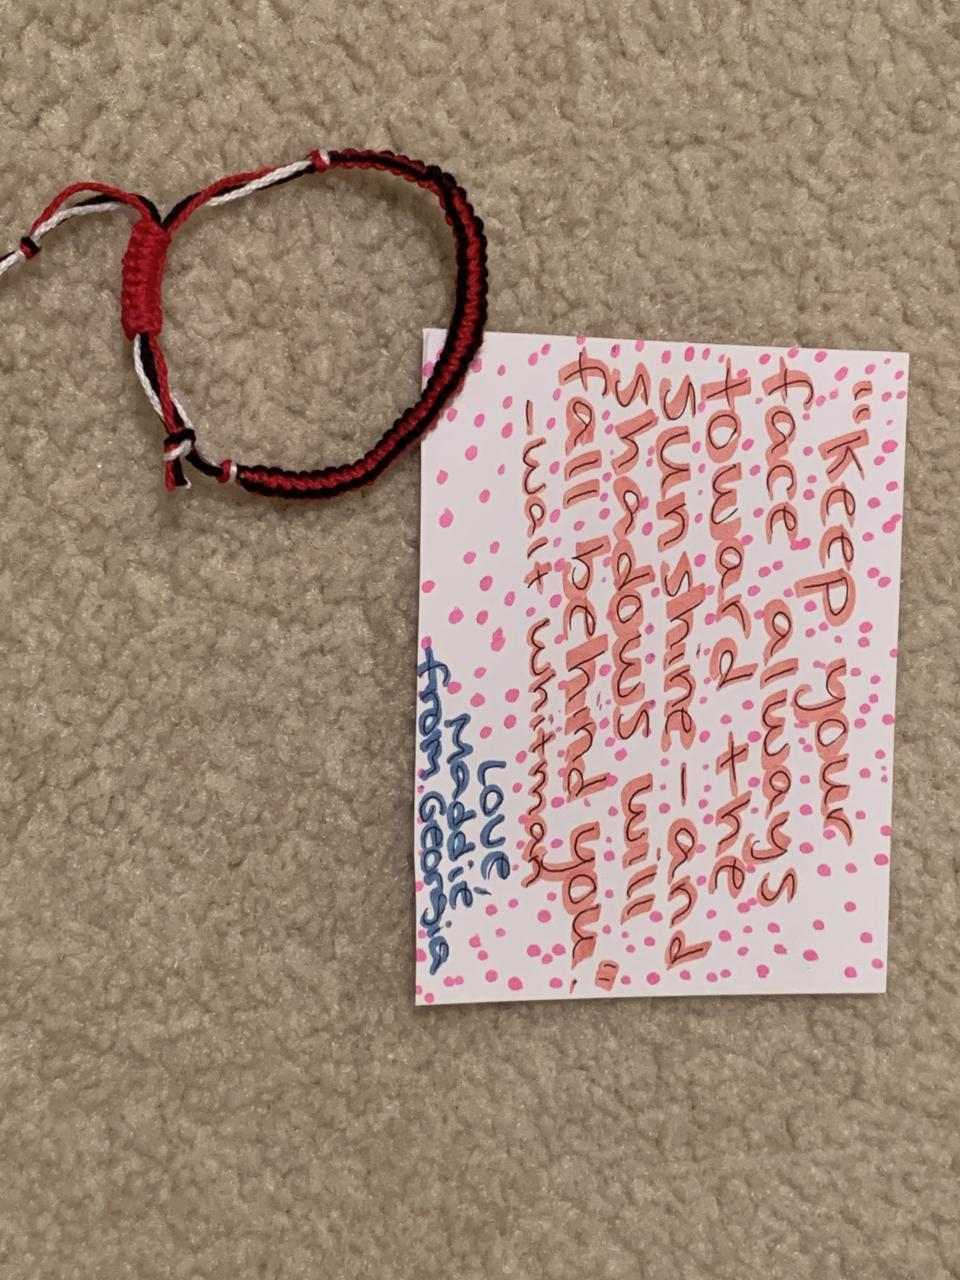 "keep your
face always
toward the
sunshine - and
shadows will
fall behind you."
-walt whitman
Love,
Maddie
from Georgia